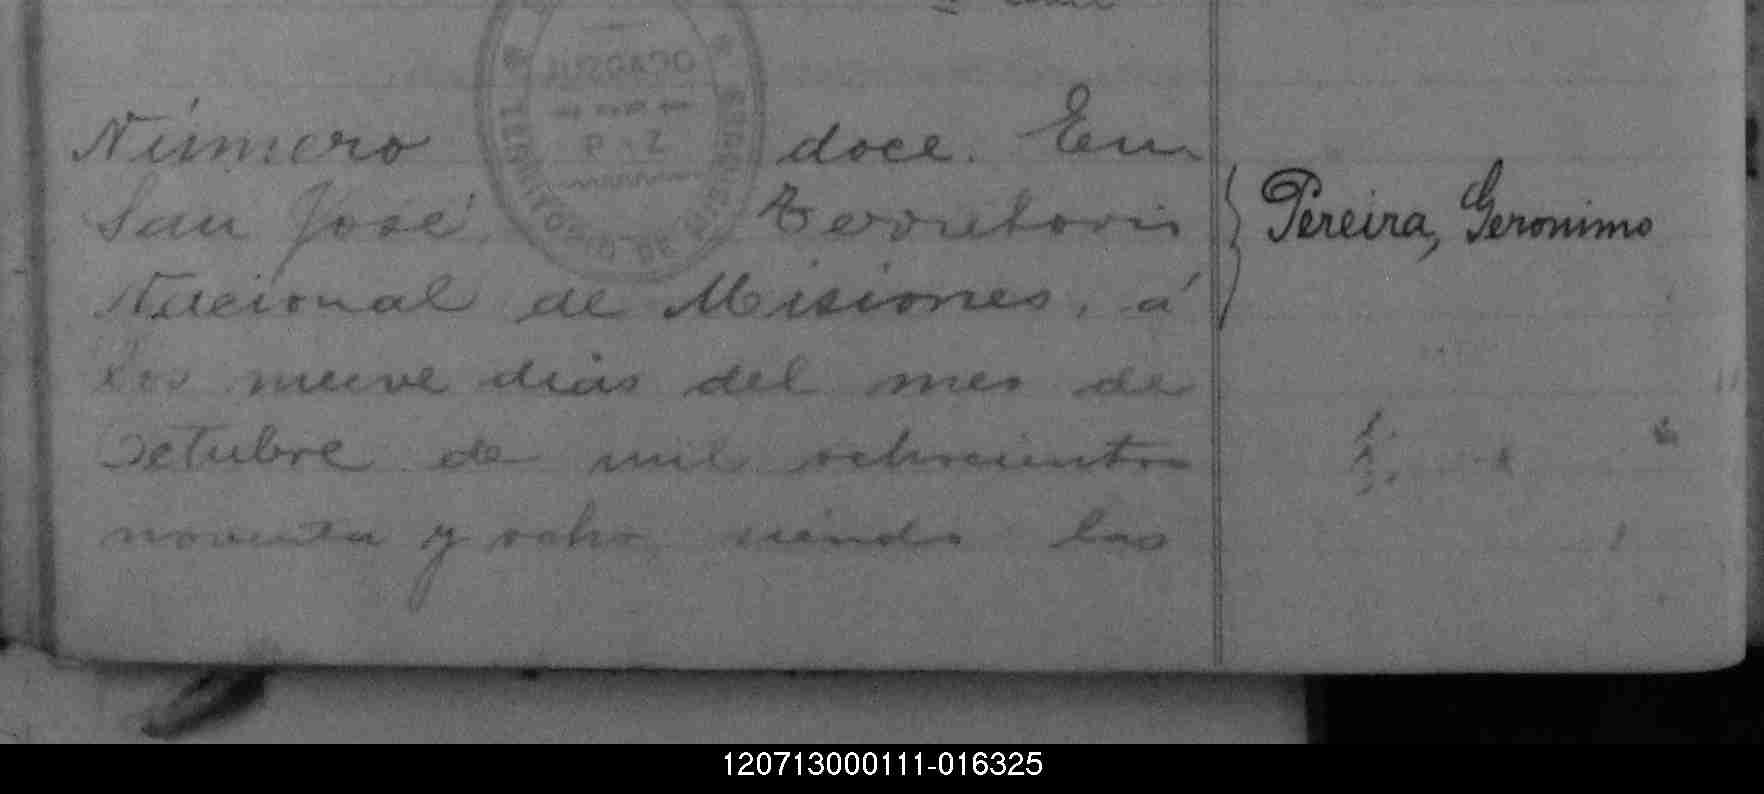 Número doce. En
San José, Territorio
Nacional de Misiones, á
los nueve dias del mes de
Octubre de mil ochocientos
noventa y ocho, siendo las
Pereira, Geronimo
JUZGADO
DE
PAZ
TERRITORIO DE MISIONES
120713000111-016325